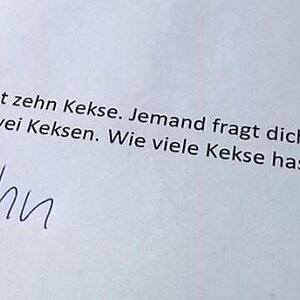 zehn Kekse. Jemand fragt dich
Keksen. Wie viele Kekse